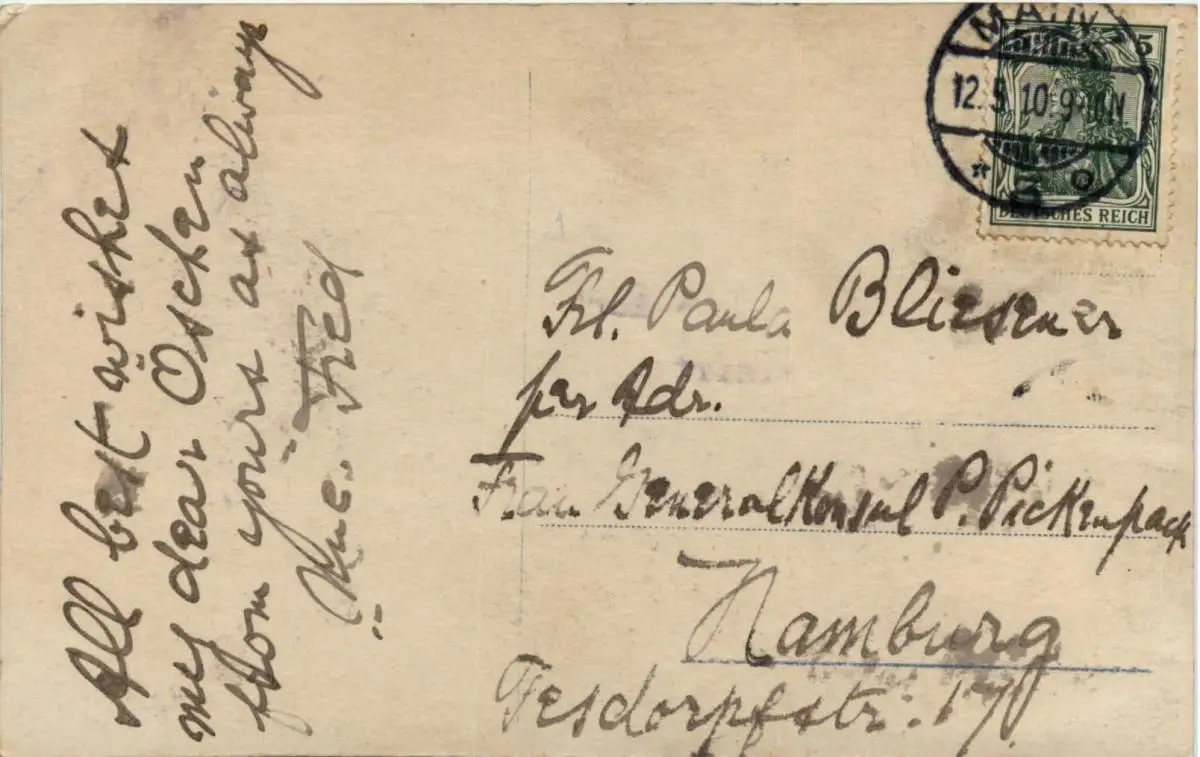 All best wishes
my dear Öschen
from yours as always
Fred
MAINZ
12.5.10.9-10N.
* o
5
DEUTSCHES REICH
Frl. Paula Bliesener
per Adr.
Frau Generalkonsul P. Pickenpack
Hamburg
Fesdorpfstr. 17